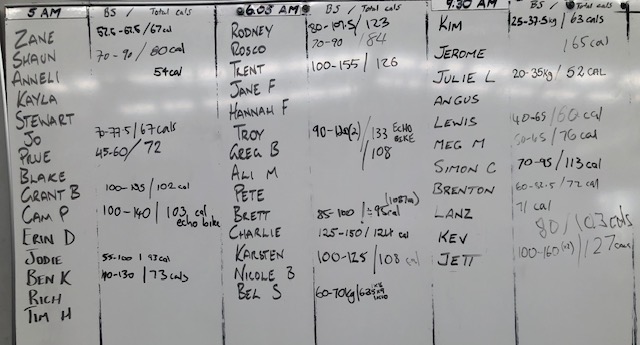 5 AM BS / Total cals
ZANE 52.5-62.5/67cal
SHAUN 70-90/80cal
ANNELI 54cal
KAYLA
STEWART
JO 70-77.5/67cals
PRUE 45-60/72
BLAKE
GRANT B 100-135/102cal
CAM P 100-140/103 cal
echo bike
ERIN D
JODIE 55-100/97cal
BEN K 110-130/73cals
RICH
TIM H
6.03 AM BS / Total cals
RODNEY 80-107.5/123
ROSCO 70-90/84
TRENT 100-155/126
JANE F
HANNAH F
TROY 90-120(2)/133 ECHO BIKE
GREG B /108
ALI M
PETE
BRETT 85-100/ 95cal
CHARLIE 125-150/124 cal
KARSTEN 100-125/108 cal
NICOLE B
BEL S 60-70kg/
9.30 AM BS / Total cals
KIM 25-37.5kg/63cals
JEROME /65cal
JULIE L 20-35kg/52 CAL
ANGUS
LEWIS 40-65/60 cal
MEG M 50-65/76 cal
SIMON C 70-95/113 cal
BRENTON 60-82.5/72 cal
LANZ 71 cal
KEV 80/103cals
JETT 100-160/127cals